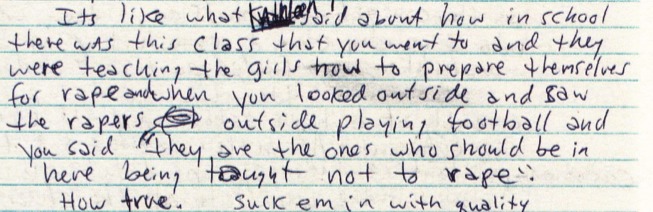 Its like what Kathleen said about how in school
there was this class that you went to and they
were teaching the girls how to prepare themselves
for rape and when you looked outside and saw
the rapers outside playing football and
you said "they are the ones who should be in
here being taught not to rape".
How true. Suck em in with quality